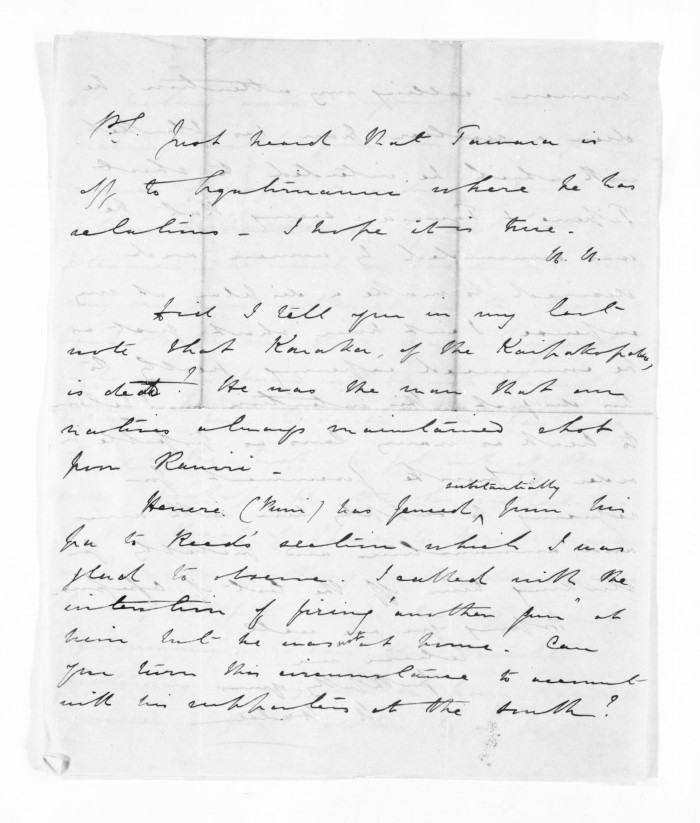 PS. Just heard that Tawara is
off to Ngatimaniu where he has
relations - I hope it is true.
Did I tell you in my last
note that Karaka, of the Kaipakopako,
is dead? He was the man that our
natives always maintained shot
poor Rawiri -
Henere (Niri) has fenced, substantially from his
pa to Reed's section which I was
glad to observe. I called with the
intention of firing "another gun" at
him but he was not at home. Can
you turn this circumstance to account
with his supporters at the south?